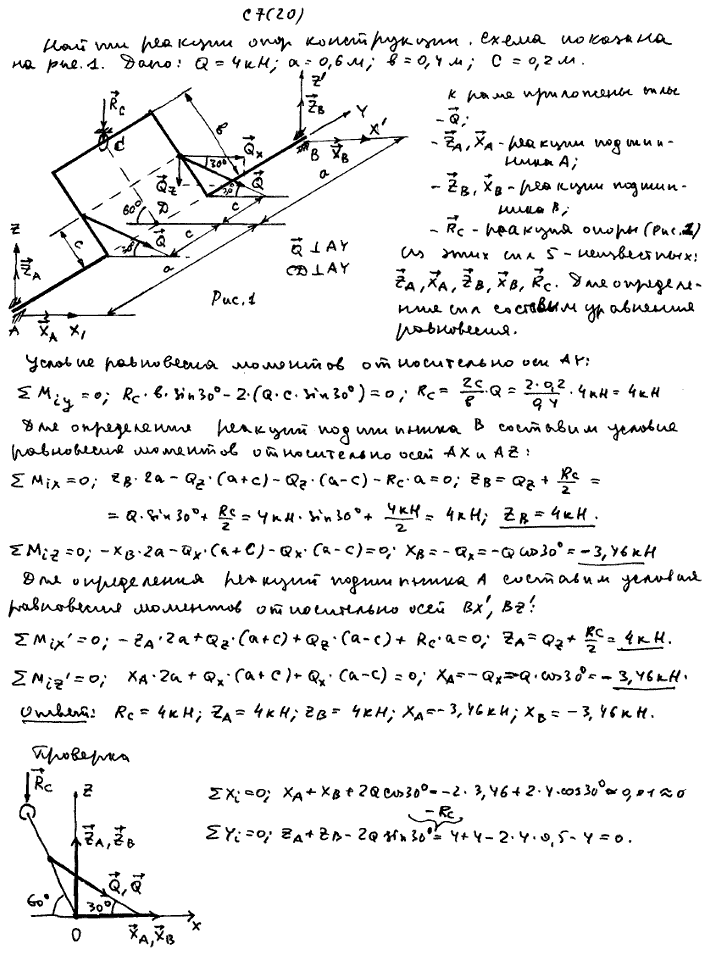 С7(20)
Найти реакции опор конструкции. Схема показана
на рис.1. Дано: Q = 4кН; a = 0,6м; в = 0,4м; C = 0,2м.
к раме приложены силы
- Q⃗;
- Z⃗A, X⃗A - реакции подшип-
ника A;
- Z⃗B, X⃗B - реакции подшип-
ника B;
- R⃗C - реакция опоры (рис.1)
Из этих сил 5 - неизвестных:
Z⃗A, X⃗A, Z⃗B, X⃗B, R⃗C. Для определе-
ния сил составим уравнения
равновесия.
R⃗C
C
в
Z'
Z⃗B
Y
X'
B
X⃗B
a
30°
Q⃗x
Q⃗z
Q⃗
30°
60°
D
c
c
c
30°
Q⃗
a
Z
Z⃗A
A
X⃗A
X₁
Q⃗ ⊥ AY
CD ⊥ AY
Рис.1
Условие равновесия моментов относительно оси AY:
ΣMiy = 0; RC·в·sin30° - 2·(Q·c·sin30°) = 0; RC = 2c/в·Q = 2·0,2/0,4·4кН = 4кН
Для определения реакций подшипника B составим условие
равновесия моментов относительно осей AX и AZ:
ΣMix = 0; ZB·2a - QZ·(a+c) - QZ·(a-c) - RC·a = 0; ZB = QZ + RC/2 =
= Q·sin30° + RC/2 = 4кН·sin30° + 4кН/2 = 4кН; ZB = 4кН.
ΣMiZ = 0; -XB·2a - Qx·(a+c) - Qx·(a-c) = 0; XB = -Qx = -Qcos30° = -3,46кН
Для определения реакций подшипника A составим условия
равновесия моментов относительно осей BX', BZ':
ΣMix' = 0; -ZA·2a + QZ·(a+c) + QZ·(a-c) + RC·a = 0; ZA = QZ + RC/2 = 4кН.
ΣMiZ' = 0; XA·2a + Qx·(a+c) + Qx·(a-c) = 0; XA = -Qx = -Q·cos30° = -3,46кН.
Ответ: RC = 4кН; ZA = 4кН; ZB = 4кН; XA = -3,46кН; XB = -3,46кН.
Проверка
R⃗C
Z
Z⃗A, Z⃗B
Q⃗, Q⃗
60°
30°
O
X⃗A, X⃗B
x
ΣXi = 0; XA + XB + 2Qcos30° = -2·3,46 + 2·4·cos30° = 0,01 ≈ 0
ΣYi = 0; ZA + ZB - 2Qsin30° - RC = 4 + 4 - 2·4·0,5 - 4 = 0.